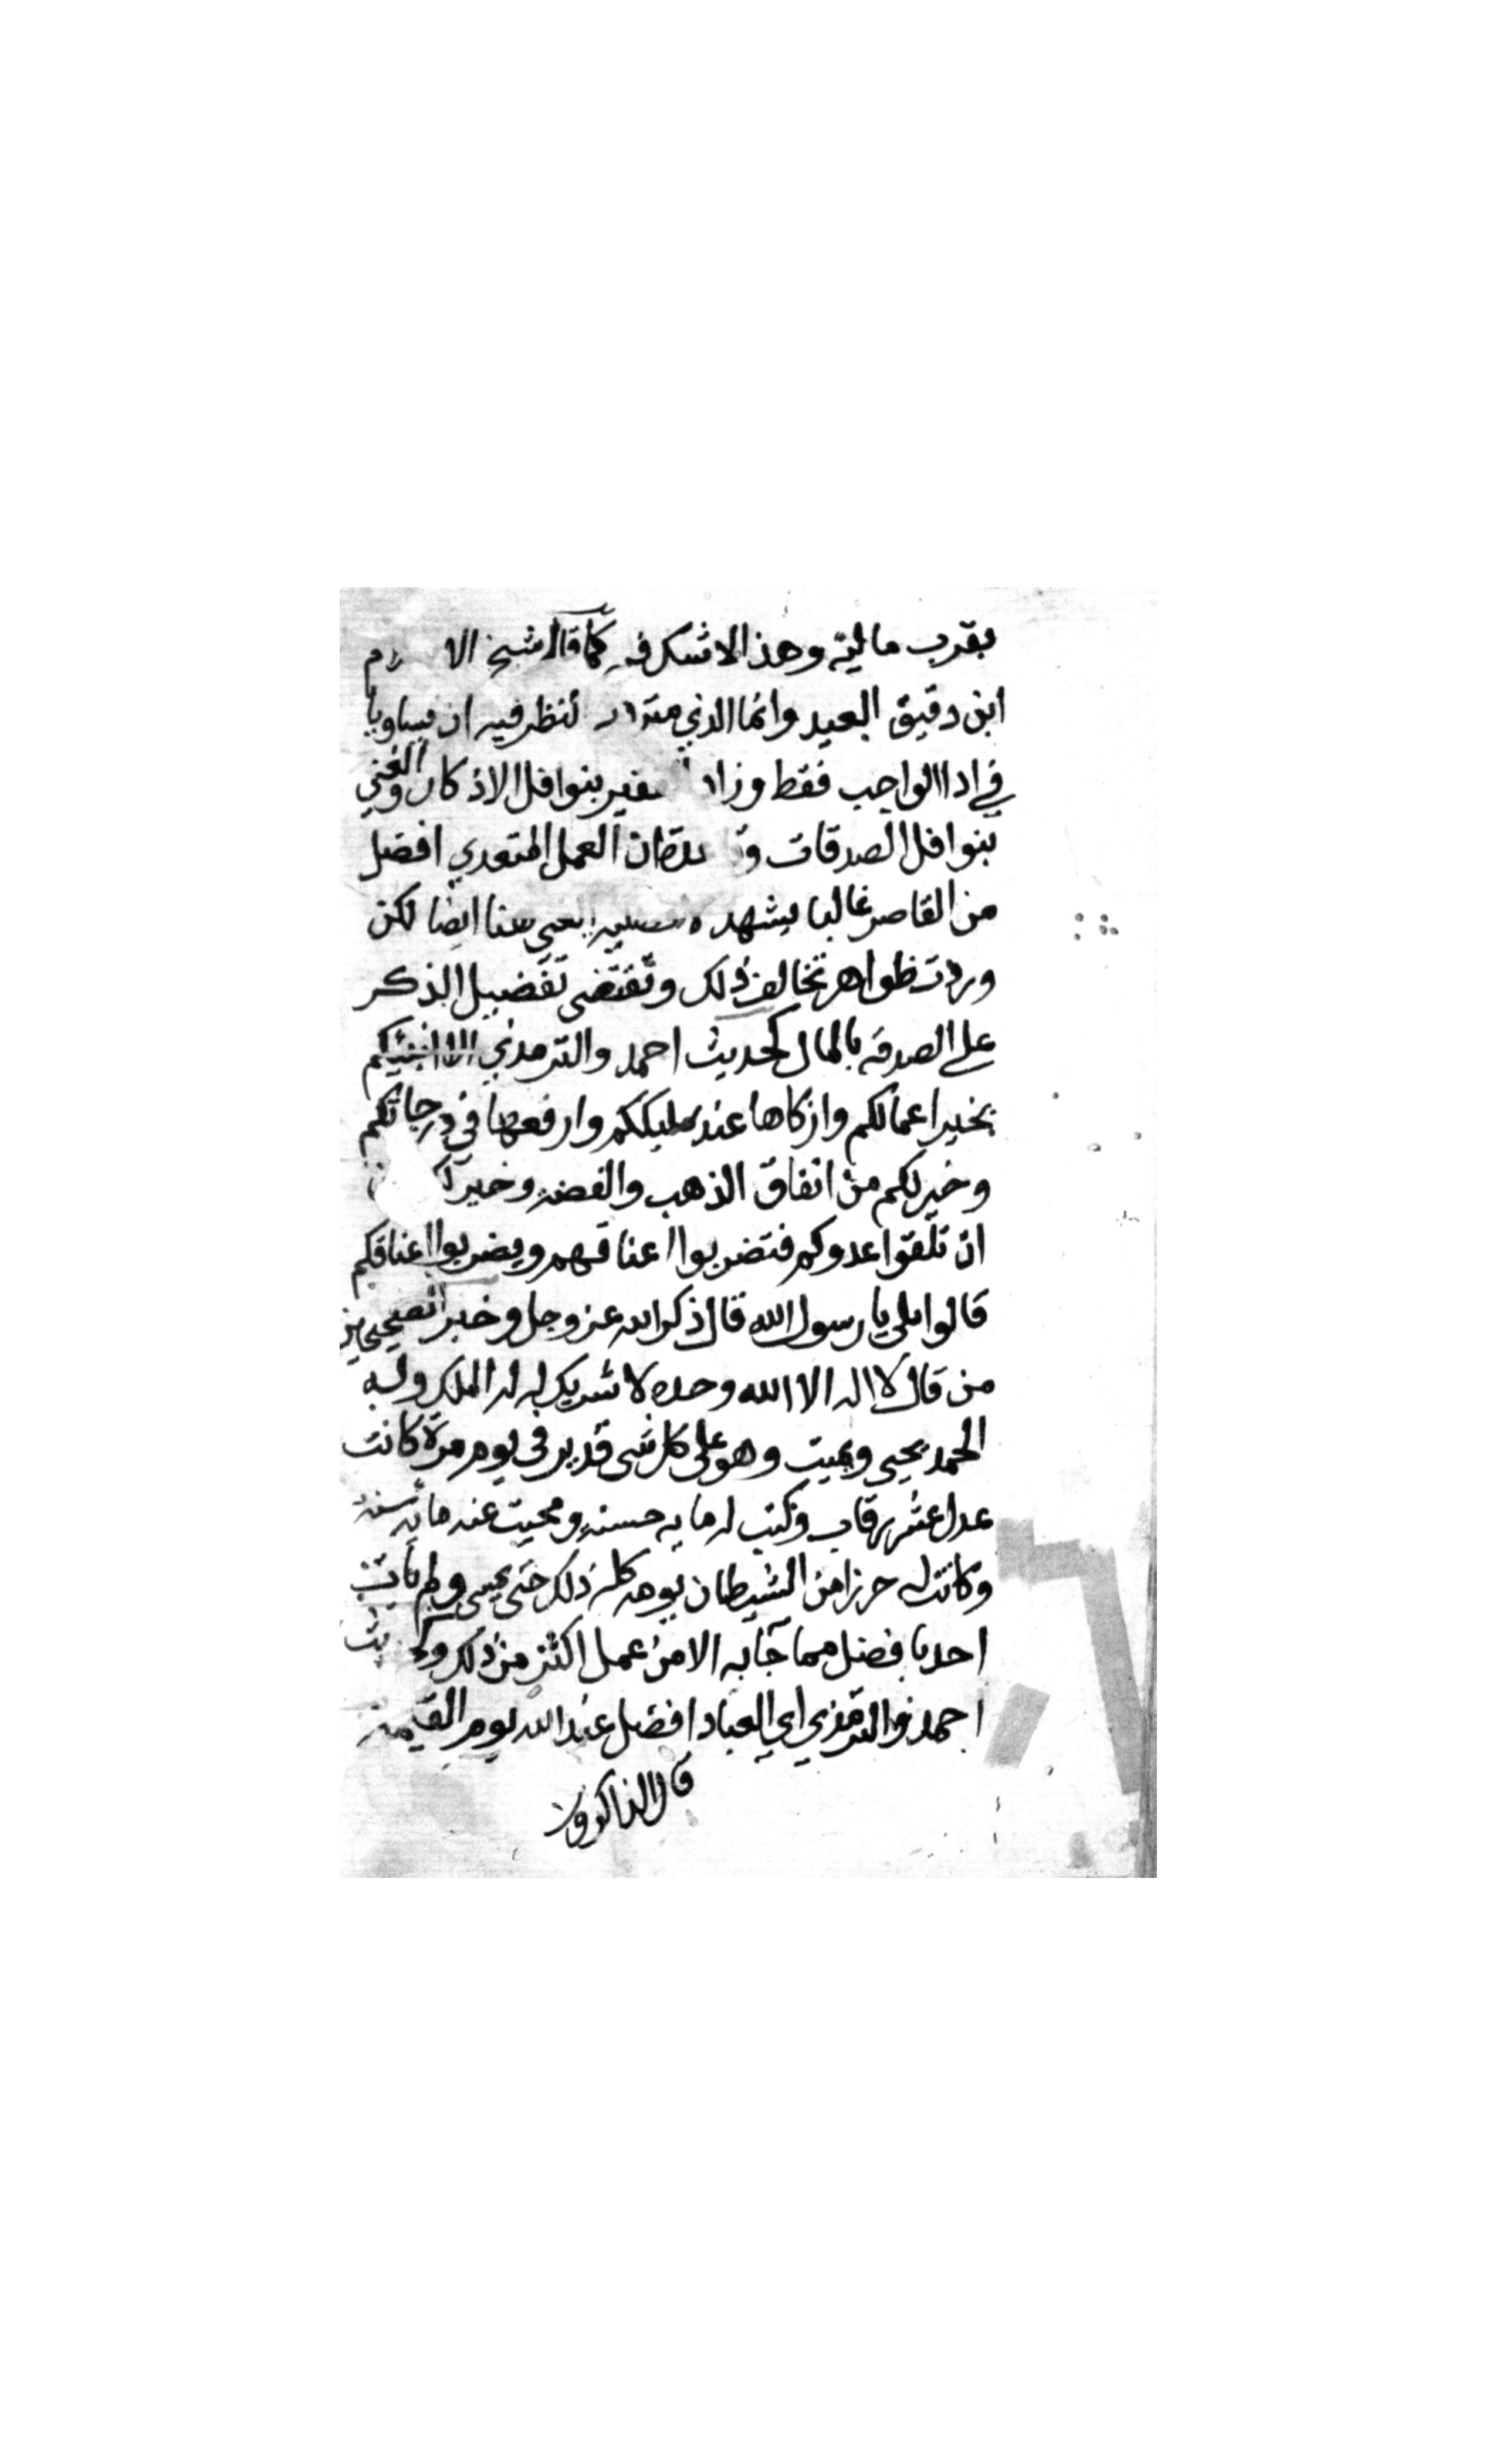 بقرب مالية وهذا لا شك فيه كما قال شيخ
ابن دقيق العيد وانما الذي لنظر فيه ان تساويا
في ادا الواجب فقط وزاد الفقير بنوافل الاذكار والغني
بنوافل الصدقات ان العمل المتعدي افضل
من القاصر غالبا يشهد هنا ايضا لكن
وردت ظواهر تخالف ذلك وتقتضي تفضيل الذكر
على الصدقه بالمال كحديث احمد والترمذي الا انبئيكم
بخير اعمالكم وازكاها عند مليككم وارفعها في درجاتكم
وخير لكم من انفاق الذهب والفضة وخير
ان تلقوا عدوكم فتضربوا اعناقهم ويضربوا اعناقكم
قالوا بلى يا رسول الله قال ذكر الله عز وجل وخبر الصحيحين
من قال لا اله الا الله وحده لا شريك له له الملك وله
الحمد يحيي ويميت وهو على كل شي قدير في يوم مرة كانت
عدل عشر رقاب وكتب له مايه حسنة ومحيت عنه مايه سيئة
وكانت له حرزا من الشيطان يومه كله ذلك حتى يمسي ولم يات
احد بافضل مما جا به الا من عمل اكثر من ذلك
احمد والترمذي اي العباد افضل عند الله يوم القيمة
قال الذاكرون